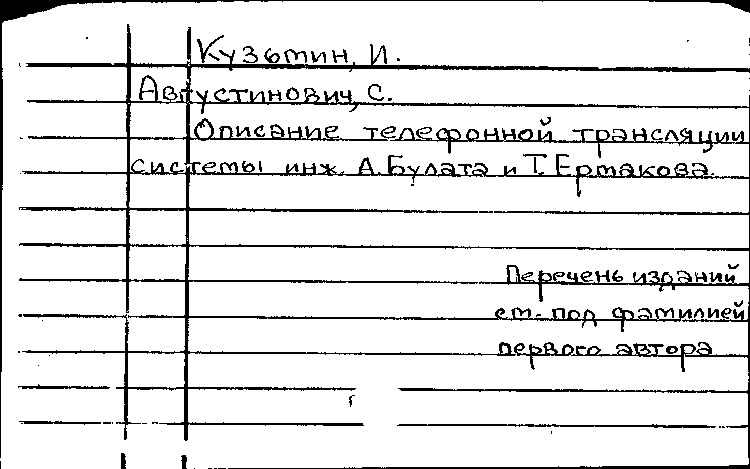 Кузьмин, И.
Августинович, С.
Описание телефонной трансляции
системы инж. А. Булата и Т. Ермакова.
Перечень изданий
см. под фамилией
первого автора